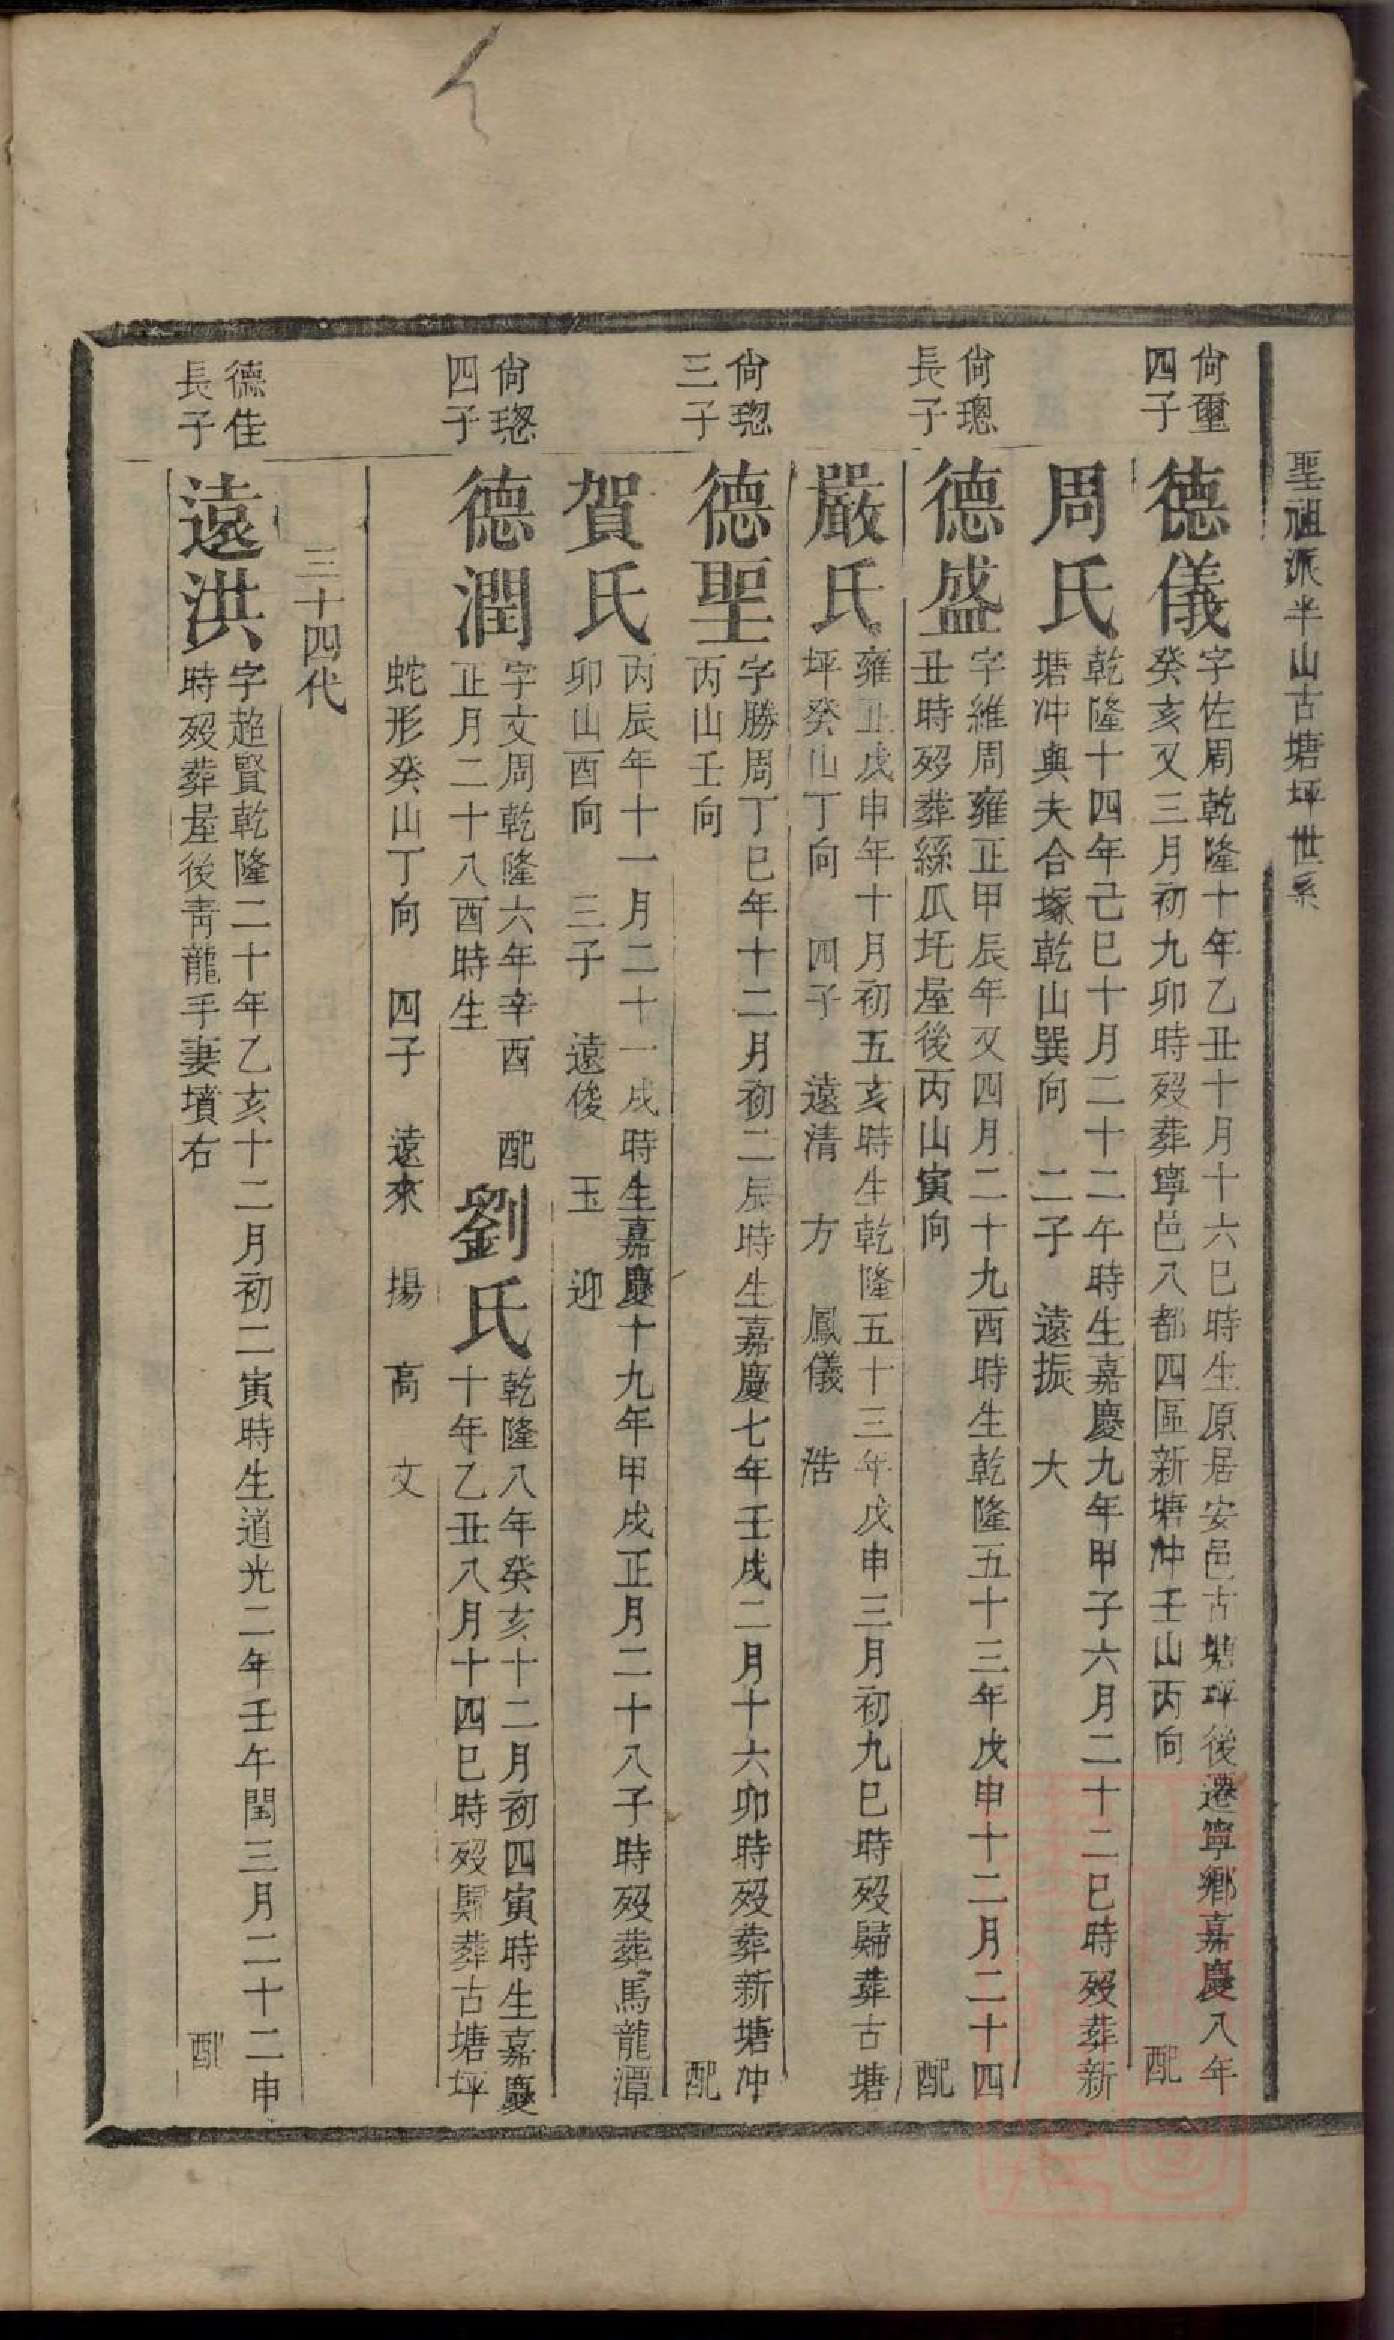 聖祖派半山古塘坪世系
尙璽
四子
德儀
字佐周乾隆十年乙丑十月十六巳時生原居安邑古塘坪後遷寧鄉嘉慶八年
癸亥又三月初九卯時歿葬寧邑八都四區新塘冲壬山丙向 配
周氏
乾隆十四年己巳十月二十二午時生嘉慶九年甲子六月二十二巳時歿葬新
塘冲與夫合塚乾山巽向 二子 遠振 大
尙璁
長子
德盛
字維周雍正甲辰年又四月二十九酉時生乾隆五十三年戊申十二月二十四
丑時歿葬絲瓜圫屋後丙山寅向 配
嚴氏
雍正戊申年十月初五亥時生乾隆五十三年戊申三月初九巳時歿歸葬古塘
坪癸山丁向 四子 遠清 方 鳳儀 浩
尙璁
三子
德聖
字勝周丁巳年十二月初二辰時生嘉慶七年壬戌二月十六卯時歿葬新塘冲
丙山壬向 配
賀氏
丙辰年十一月二十一戌時生嘉慶十九年甲戌正月二十八子時歿葬馬龍潭
卯山酉向 三子 遠俊 玉 迎
尙璁
四子
德潤
字文周乾隆六年辛酉 配
正月二十八酉時生
劉氏
乾隆八年癸亥十二月初四寅時生嘉慶
十年乙丑八月十四巳時歿歸葬古塘坪
蛇形癸山丁向 四子 遠來 揚 高 文
三十四代
德佳
長子
遠洪
字超賢乾隆二十年乙亥十二月初二寅時生道光二年壬午閏三月二十二申
時歿葬屋後靑龍手妻墳右 配